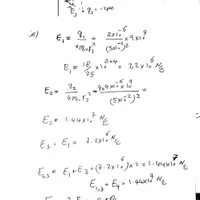 E₃ q₃ = -2μc
E₁ = q₁/4πε₀r₁² = 2x10⁻⁶ x 9x10⁹ / (5x10⁻²)²
E₁ = 18/25 x10³⁺⁴ = 7.2x10⁶ N/C
E₂ = q₂/4πε₀r₂² = 4x10⁻⁶x9x10⁹/(5x10⁻²)² =
E₂ = 1.44x10⁷ N/C
E₃ = E₁ = 7.2x10⁶ N/C
E₁,₃ = E₁+E₃ = (7.2x10⁶)x2 = 1.44x10⁷
E₁,₃ = E₄ = 1.44x10⁷ N/C